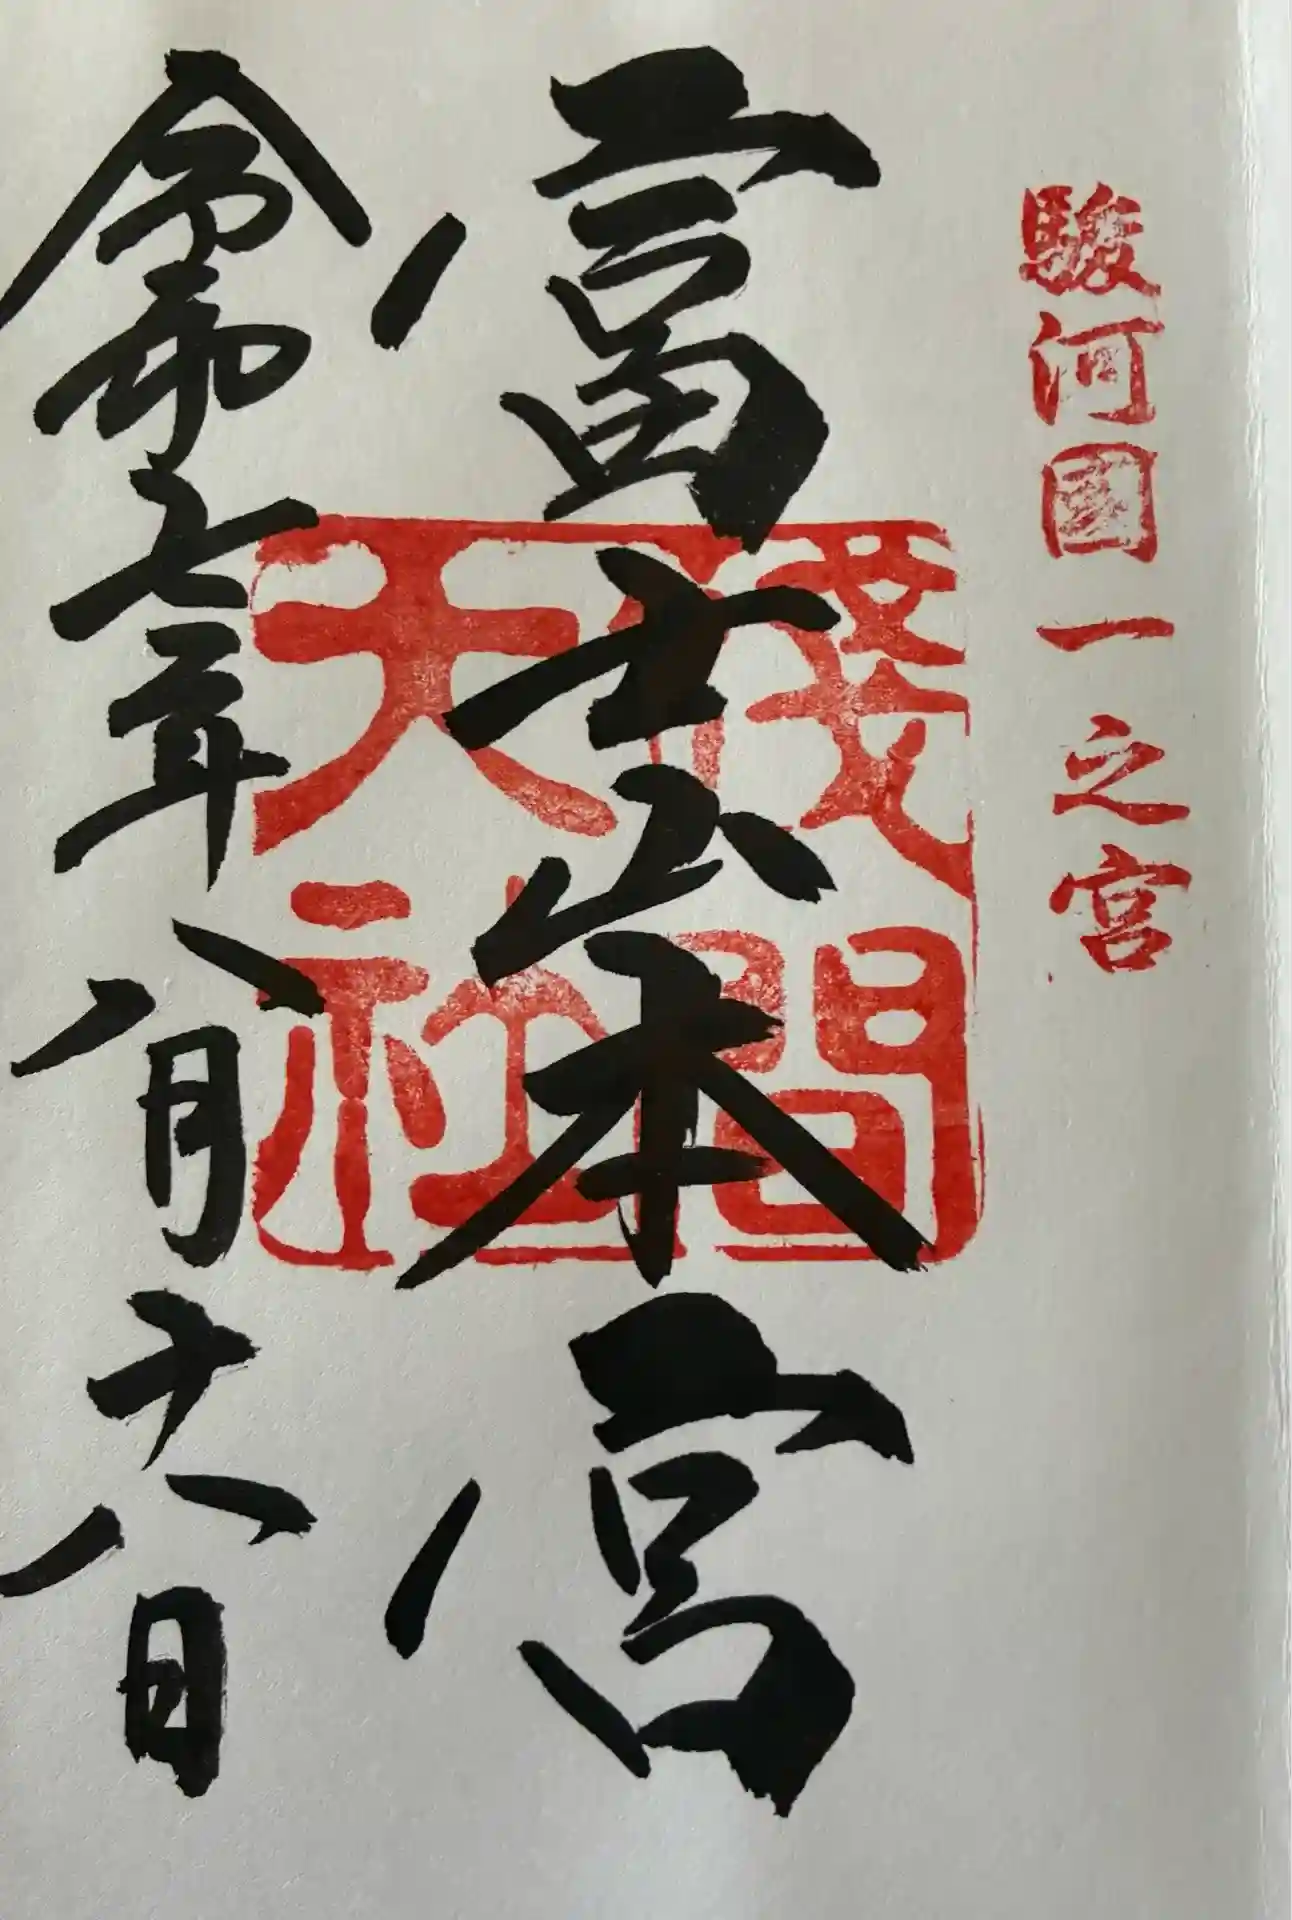 駿河國一之宮
富士山本宮
淺間大社
令和七年八月十八日